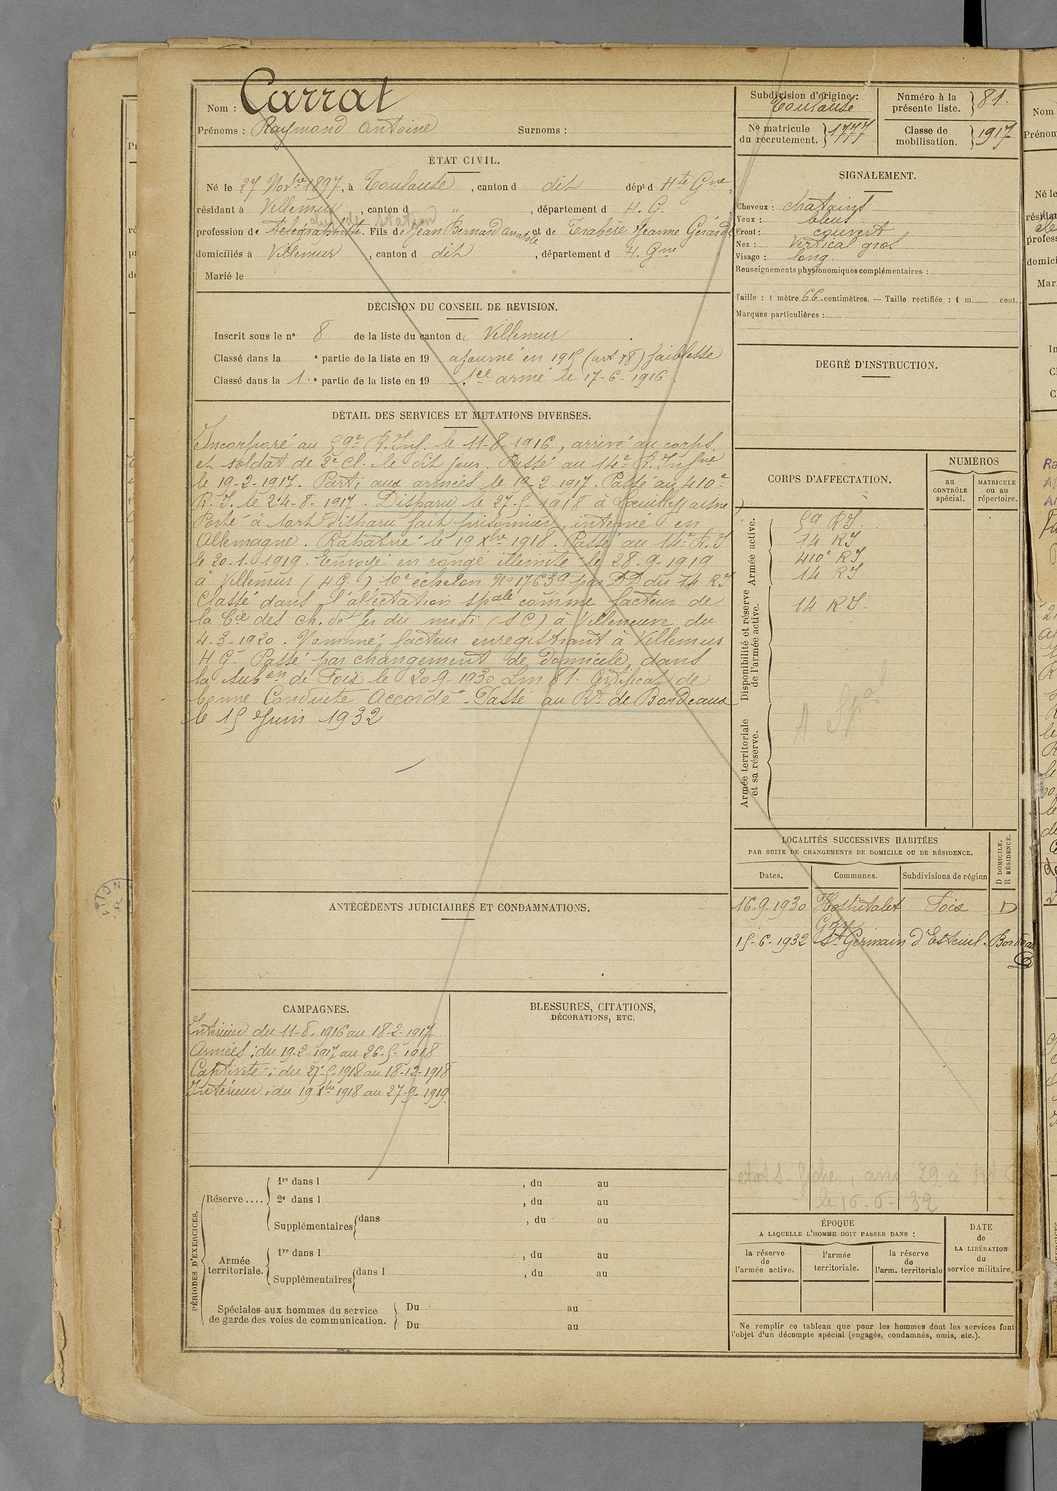 Nom : Carrat
Prénoms : Raymond Antoine Surnoms :
ÉTAT CIVIL.
Né le 27 Novbre 1897, à Toulouse, canton d dit dépt d Hte Gne,
résidant à Villemur, canton d " , département d H. G.
profession de télégraphiste. Fils de Jean Bernard Anatole et de Trabère Jeanne Gérarde
domiciliés à Villemur, canton d dit, département d H. Gne
Marié le
DÉCISION DU CONSEIL DE REVISION.
Inscrit sous le no 8 de la liste du canton de Villemur
Classé dans la e partie de la liste en 19 ajourné en 1915 (art 18) faiblesse
Classé dans la 1 e partie de la liste en 19 sce armé le 17-6-1916.
DÉTAIL DES SERVICES ET MUTATIONS DIVERSES.
Incorporé au 59e R. Inf. le 11-8-1916, arrivé au corps
et soldat de 2e Cl. le dit jour. Passé au 14e R. Infrie
le 19-2-1917. Parti aux armées le 19-2-1917. Passé au 410e
R. I. le 24-8-1917. Disparu le 27-5-1918 à Aisne
Porté à tort disparu fait prisonnier, interné en
Allemagne. Rapatrié le 19 Xbre 1918. Passé au 14e R. I
le 30-1-1919. Envoyé en congé illimité le 28-9-1919
à Villemur (H.G.) 10e échelon No 17639 par DD. du 14 RI
Classé dans l'affectation spale comme facteur de
la Cie des ch. de fer du midi (S C) à Villeneuve du
4-3-1920. Nommé facteur enregistrant à Villemur
H G. Passé par changement de domicile, dans
la Subon de Foix le 20-9-1930 Certificat de
bonne Conduite Accordé. Passé au Rt de Bordeaux
le 15 Juin 1932
ANTÉCÉDENTS JUDICIAIRES ET CONDAMNATIONS.
CAMPAGNES.
Intérieur du 11-8-1916 au 18-2-1917
Armées : du 19-2-1917 au 26-5-1918
Captivité : du 27-5-1918 au 18-12-1918
Intérieur : du 19 Xbre 1918 au 27-9-1919
BLESSURES, CITATIONS,
DÉCORATIONS, ETC.
PÉRIODES D'EXERCICES.
Réserve ....
1re dans l , du au
2e dans l , du au
Supplémentaires dans , du au
Armée territoriale.
1re dans l , du au
Supplémentaires dans l , du au
Spéciales aux hommes du service
de garde des voies de communication.
Du au
Du au
Subdivision d'origine : Toulouse
Numéro à la présente liste. 81.
No matricule du recrutement. 1777
Classe de mobilisation. 1917
SIGNALEMENT.
Cheveux : châtains
Yeux : bleus
Front : couvert
Nez : Vertical gros
Visage : long
Renseignements physionomiques complémentaires :
Taille : 1 mètre 66 centimètres. — Taille rectifiée : 1 m. cent.
Marques particulières :
DEGRÉ D'INSTRUCTION.
CORPS D'AFFECTATION.
NUMÉROS
au CONTRÔLE spécial.
MATRICULE ou au répertoire.
Armée active.
59 R I.
14 R I
410e R I
14 R I
Disponibilité et réserve de l'armée active.
14 R I.
Armée territoriale et sa réserve.
LOCALITÉS SUCCESSIVES HABITÉES
PAR SUITE DE CHANGEMENTS DE DOMICILE OU DE RÉSIDENCE.
D DOMICILE. R RÉSIDENCE.
Dates. Communes. Subdivisions de région
16-9-1930 Hospitalet Foix D
Gare
15-6-1932 St Germain d'Esteuil. Bordeaux
le 16-6-32
ÉPOQUE
A LAQUELLE L'HOMME DOIT PASSER DANS :
la réserve de l'armée active.
l'armée territoriale.
la réserve de l'arm. territoriale
DATE de LA LIBÉRATION du service militaire.
Ne remplir ce tableau que pour les hommes dont les services font
l'objet d'un décompte spécial (engagés, condamnés, omis, etc.).